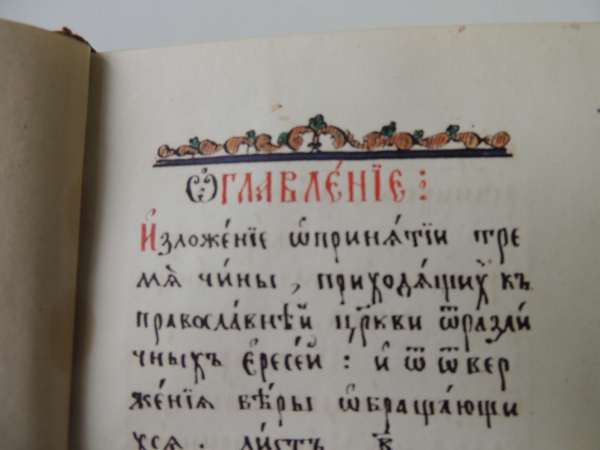 Ѡ҆ГЛАВЛЕ́НЇЕ:
И҆зложе́нїе ѡ҆приня́тїи тре
мѧ̀ чи́ны, приходѧ́щиⷯ къ
правосла́внѣй цр҃кви ѿразли́
чныхъ є҆ресе́й: и҆ ѿ ѿвер
же́нїѧ вѣ́ры ѡ҆браща́ющи
хсѧ. ли́стъ в҃